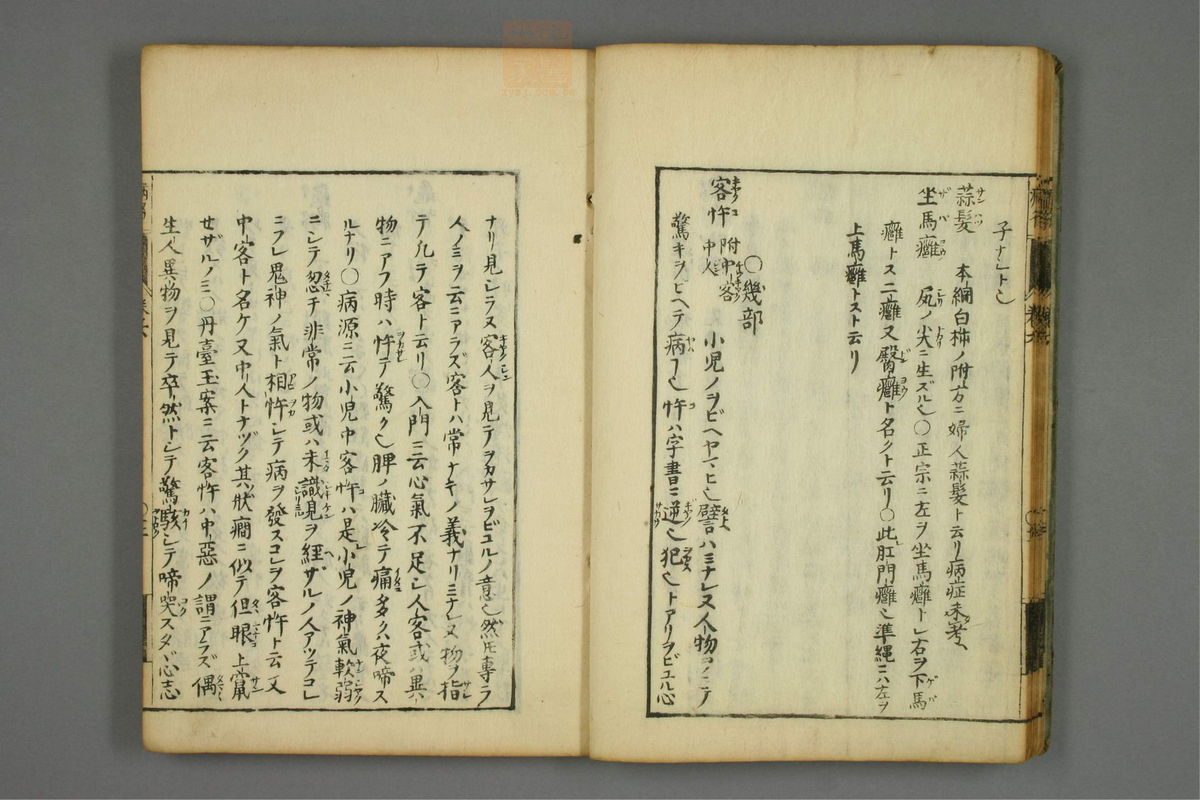 子ナレトモ
蒜髪 本綱白柿ノ附方ニ婦人蒜髪ト云リ病症未考
坐馬癰 尻ノ尖ニ生ズル也〇正宗ニ左ヲ坐馬癰トシ右ヲ下馬
癰トス二癰又臀癰ト名クト云リ〇此肛門癰也準縄ニハ左ヲ
上馬癰トスト云リ
〇幾部
客忤 附中客 中人 小児ノヲビヘヤマヒ也譬ハミナレヌ人物ヲミテ
驚キヲビヘテ病ヿ也忤ハ字書ニ逆也犯也トアリヲビユル心
ナリ見シラヌ客人ヲ見テヲカサレヲビユルノ意也然𪜈專ラ
人ノミヲ云ニアラズ客トハ常ナキノ義ナリミナレヌ物ヲ指
テ凡テ客ト云リ〇入門ニ云心氣不足シ人客或ハ異
物ニアフ時ハ忤テ驚ク也脾ノ臓冷テ痛多クハ夜啼ス
ルナリ〇病源ニ云小児中客忤ハ是小児ノ神氣軟弱
ニシテ忽チ非常ノ物或ハ未識見ヲ經ザルノ人アツテコレ
ニフレ鬼神ノ氣ト相忤シテ病ヲ發スコレヲ客忤ト云又
中客ト名ケ又中人トナヅク其状癇ニ似テ但眼上竄
セザルノミ〇丹臺玉案ニ云客忤ハ中惡ノ謂ニアラズ偶
生人異物ヲ見テ卒然トシテ驚駭シテ啼哭スタヾ心志